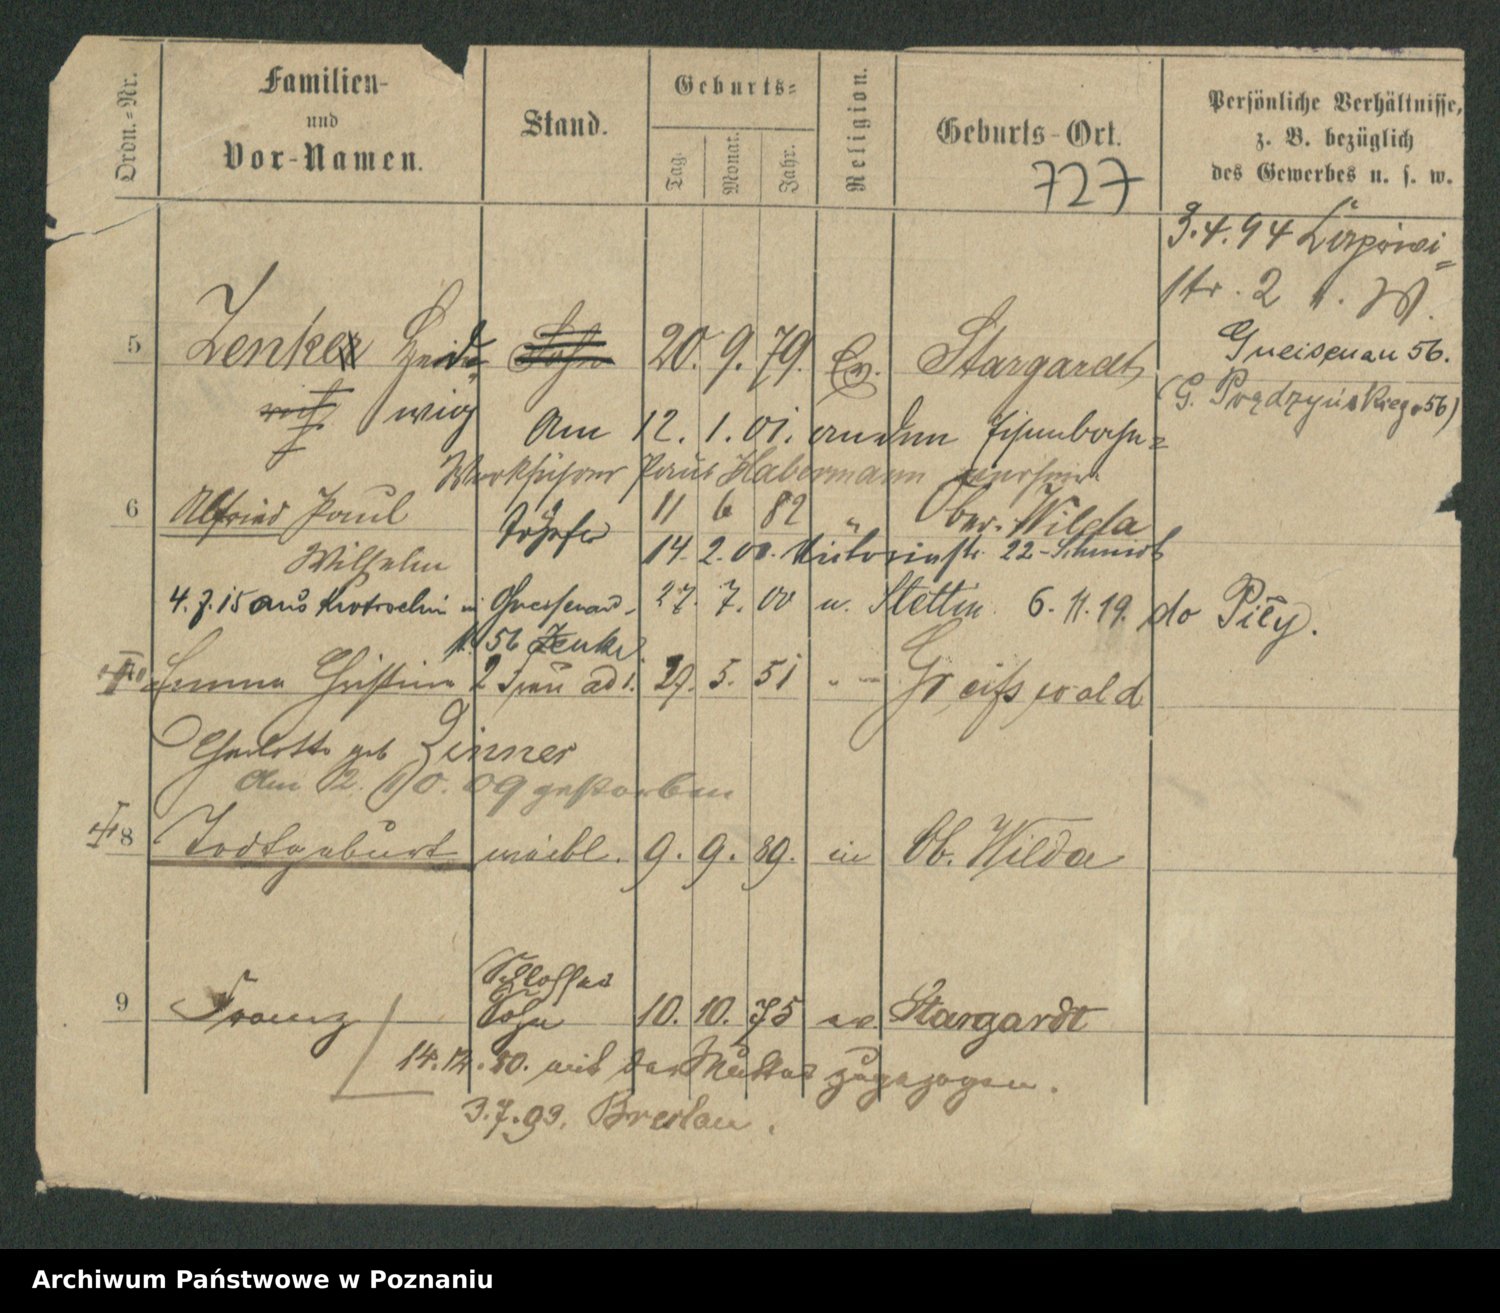 Ordn.-Nr.
Familien-
und
Vor-Namen.
Stand.
Geburts-
Tag.
Monat.
Jahr.
Religion.
Geburts-Ort.
Persönliche Verhältnisse,
z. B. bezüglich
des Gewerbes u. s. w.
727
3.4.94
str. 2
5 Zenker 20. 9. 79. Ev. Stargardt
Gneisenau 56.
wig
(G. Prądzyńskiego 56)
Am 12. 1. 01. an den Eisenbahn-
Werkführer Paul Habermann
6 Alfried Paul 11 6 82 " Ober-Wilda
Wilhelm
14. 2. 00. Victoriastr. 22 - Schmidt
4. 7. 15 aus Krotoschin 27. 7. 00 n. Stettin. 6. 11. 19. do Piły.
56 Zenke
Emma Christine Frau ad 1. 29. 5. 51 " Greifswald
Charlotte geb Zinner
Am 2. 10. 09 gestorben
8 Todtgeburt weibl. 9. 9. 89. Ob. Wilda
Schlosser
9 Franz Sohn 10. 10. 75 ev Stargardt
mit der Mutter zugezogen.
3. 7. 93. Breslau.
Archiwum Państwowe w Poznaniu